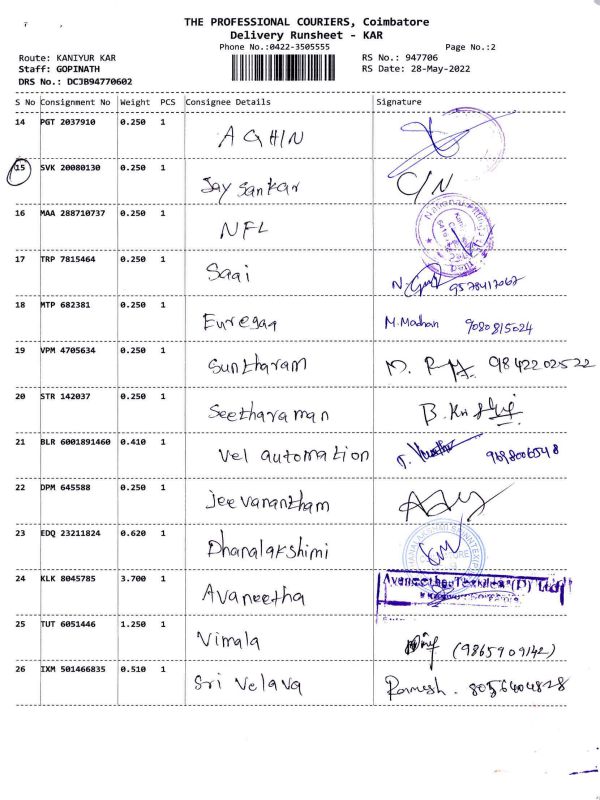 THE PROFESSIONAL COURIERS, Coimbatore
Delivery Runsheet - KAR
Phone No.:0422-3505555 Page No.:2
Route: KANIYUR KAR RS No.: 947706
Staff: GOPINATH RS Date: 28-May-2022
DRS No.: DCJB94770602
S No Consignment No Weight PCS Consignee Details Signature
14 PGT 2037910 0.250 1 AGHIN
15 SVK 20080130 0.250 1 Jay Sankar C/N
16 MAA 288710737 0.250 1 NFL
17 TRP 7815464 0.250 1 Saai 9578417067
18 MTP 682381 0.250 1 Euregaa M.Madhan 9080815024
19 VPM 4705634 0.250 1 Suntharam 9842202522
20 STR 142037 0.250 1 Seetharaman
21 BLR 6001891460 0.410 1 Vel automation 9698006548
22 DPM 645588 0.250 1 Jeevanantham
23 EDQ 23211824 0.620 1 Dhanalakshimi
24 KLK 8045785 3.700 1 Avaneetha Avaneetha Textiles (P) Ltd
25 TUT 6051446 1.250 1 Vimala (9865909142)
26 IXM 501466835 0.510 1 Sri Velava Ramesh. 8056404828